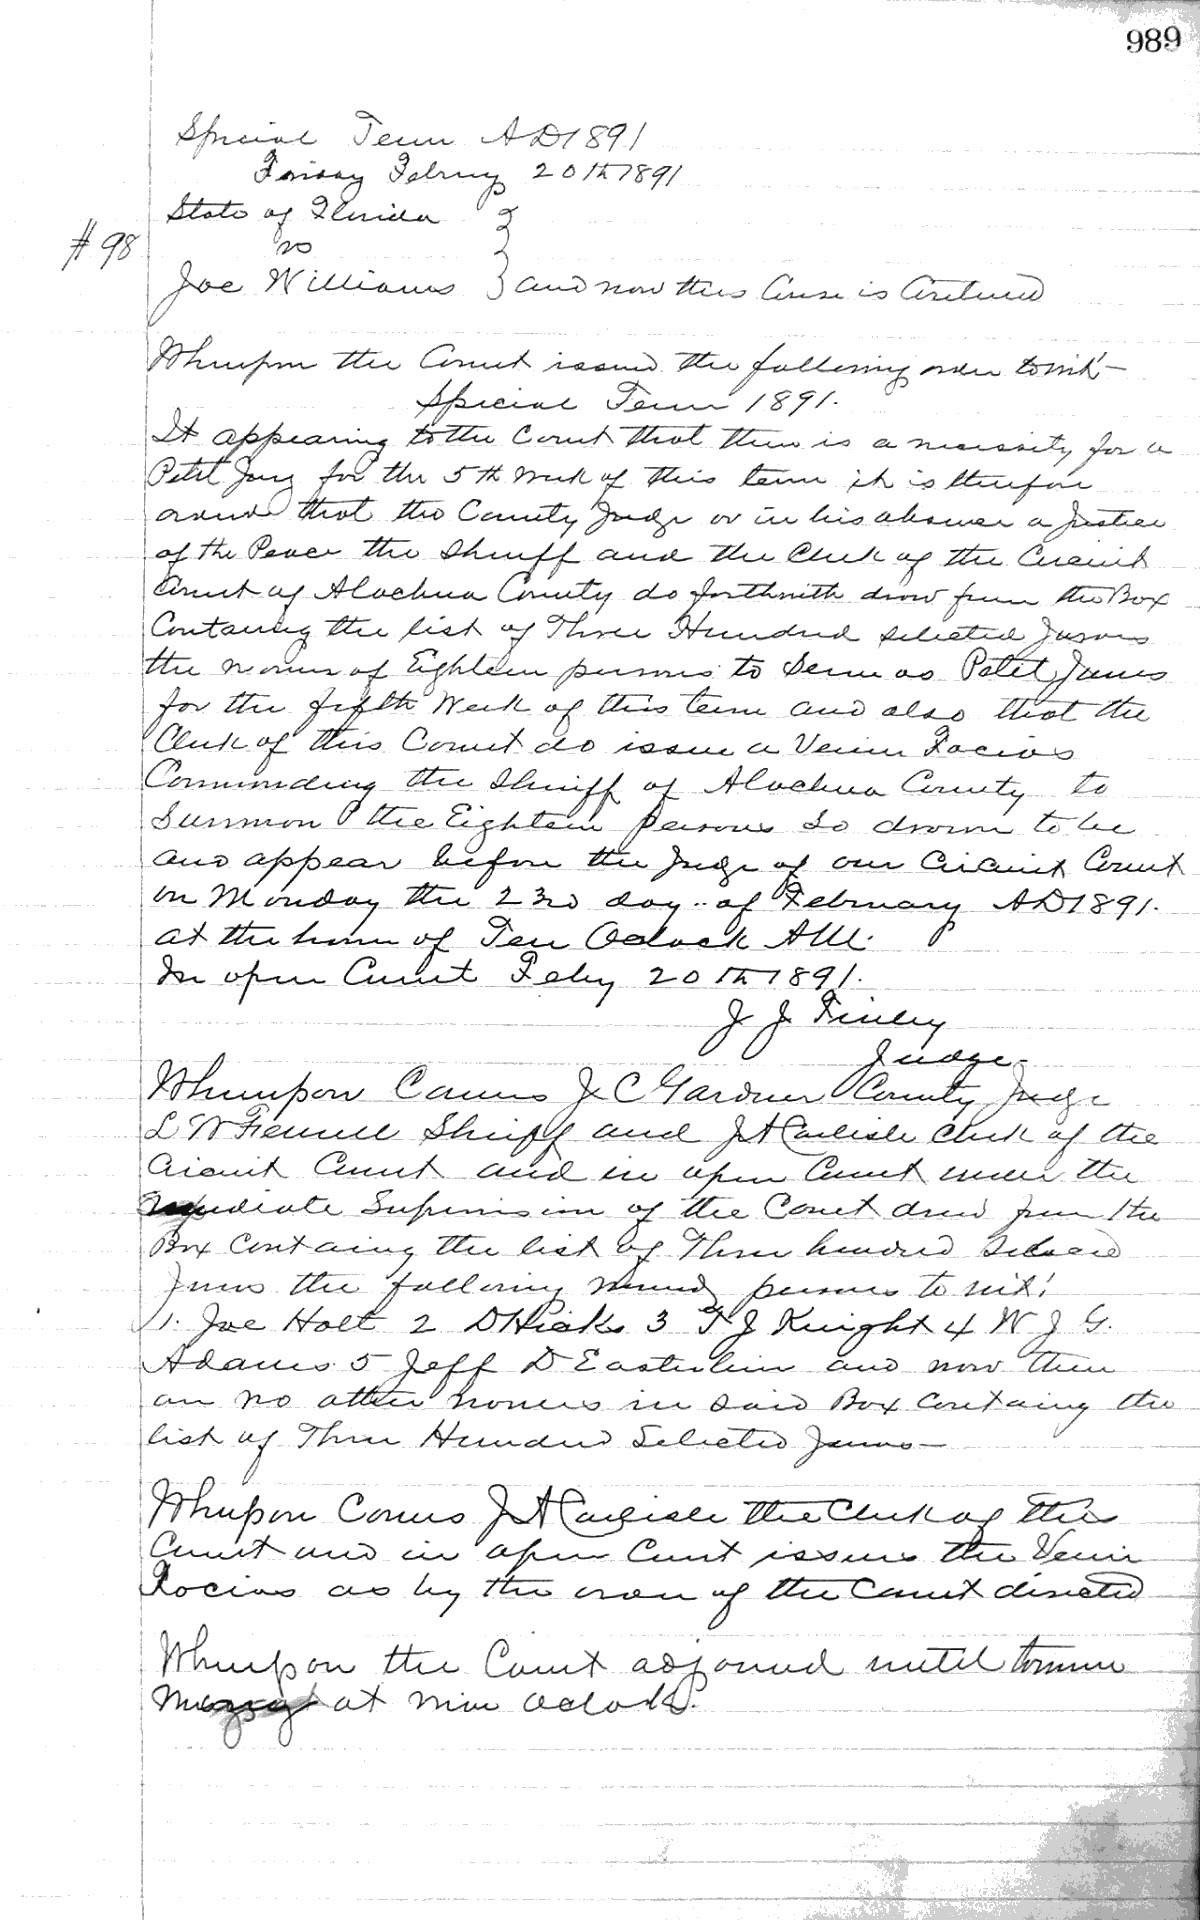 989
Special Term AD 1891
Friday Febry 20th 1891
State of Florida
# 98
vs
Joe Williams } and now this Cause is Continued
Whereupon the Court issued the following order towit-
Special Term 1891.
It appearing to the Court that there is a necessity for a
Petit Jury for the 5th Week of this term it is therefore
ordered that the County Judge or in his absence a Justice
of the Peace the Sheriff and the Clerk of the Circuit
Court of Alachua County do forthwith draw from the Box
Containing the list of Three Hundred selected Jurors
the names of Eighteen persons to serve as Petit Jurors
for the fifth Week of this term and also that the
Clerk of this Court do issue a Venire Facias
Commanding the Sheriff of Alachua County to
Summon the Eighteen persons so drawn to be
and appear before the Judge of our Circuit Court
on Monday the 23rd day of February AD 1891.
at the hour of Ten Oclock AM.
In open Court Feby 20th 1891.
J J Finley
Judge
Whereupon Comes J C Gardner County Judge
L W Fennell Sheriff and J A Carlisle Clerk of the
Circuit Court and in open Court under the
Supervision of the Court drew from the
Box Containg the list of Three hundred Selected
Jurors the following named persons to wit:
1. Joe Holt 2 D Hicks 3 T J Knight 4 W J G.
Adams 5 Jeff D Easterlin and now there
are no other names in said Box Containg the
list of Three Hundred Selected Jurors-
Whupon Comes J A Carlisle the Clerk of this
Court and in open Court issues the Venire
Facias as by the order of the Court directed
Whereupon the Court adjourned until
at nine oclock.